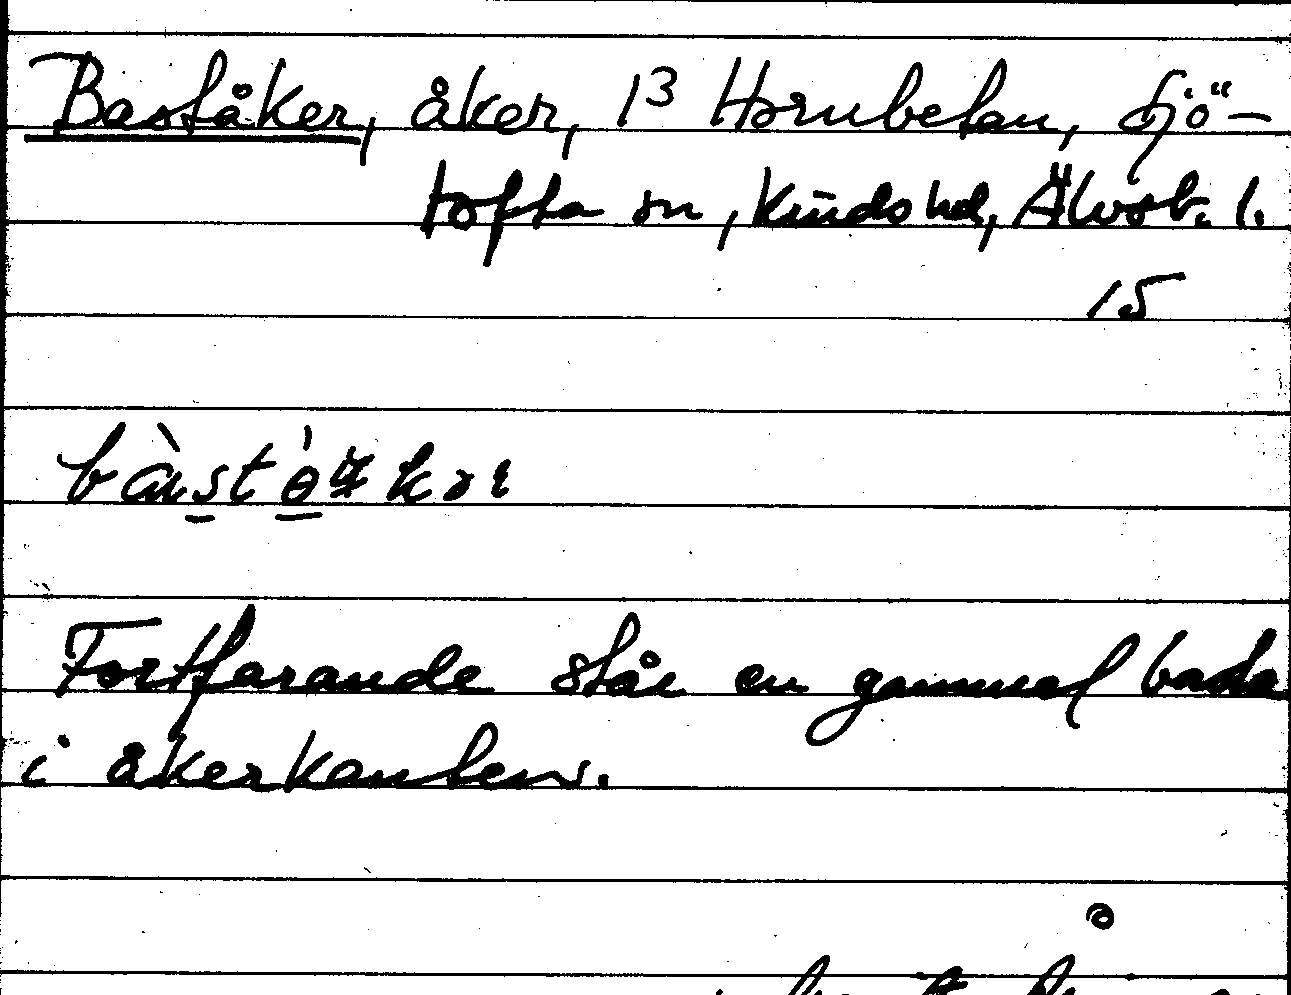 Baståker, åker, 13 Hornbetan, Sjö-
tofta sn, Kinds hd, Älvsb. l.
15
Fortfarande står en gammal bada
i åkerkanten.